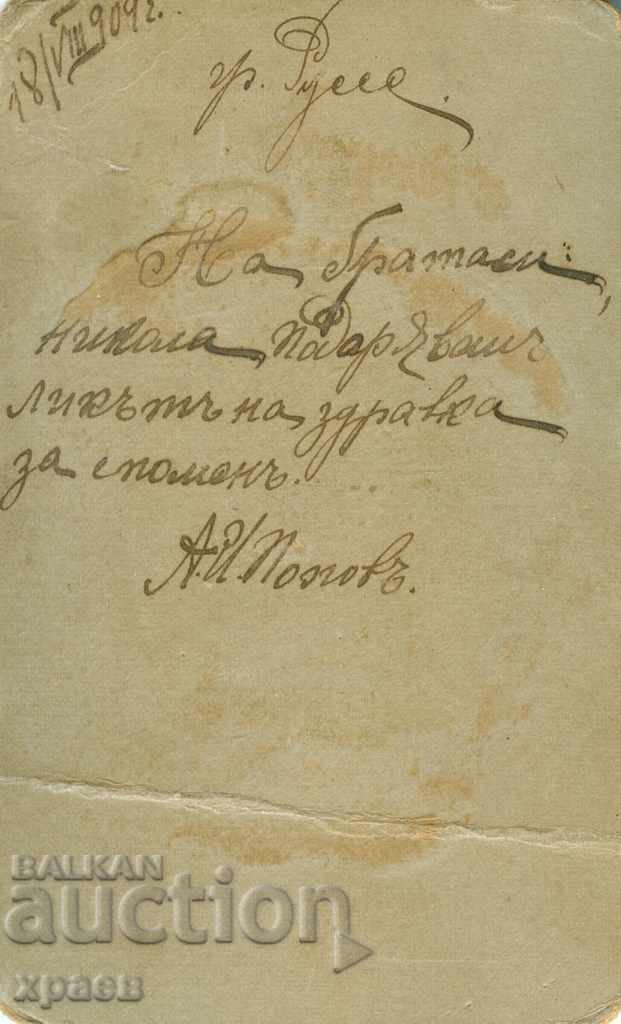 18/VIII 909 г.
гр. Русе.
На братаси,
никола подарявамъ
ликътъ на здравка
за споменъ.
А. И. Поповъ.
BALKAN
auction
храев